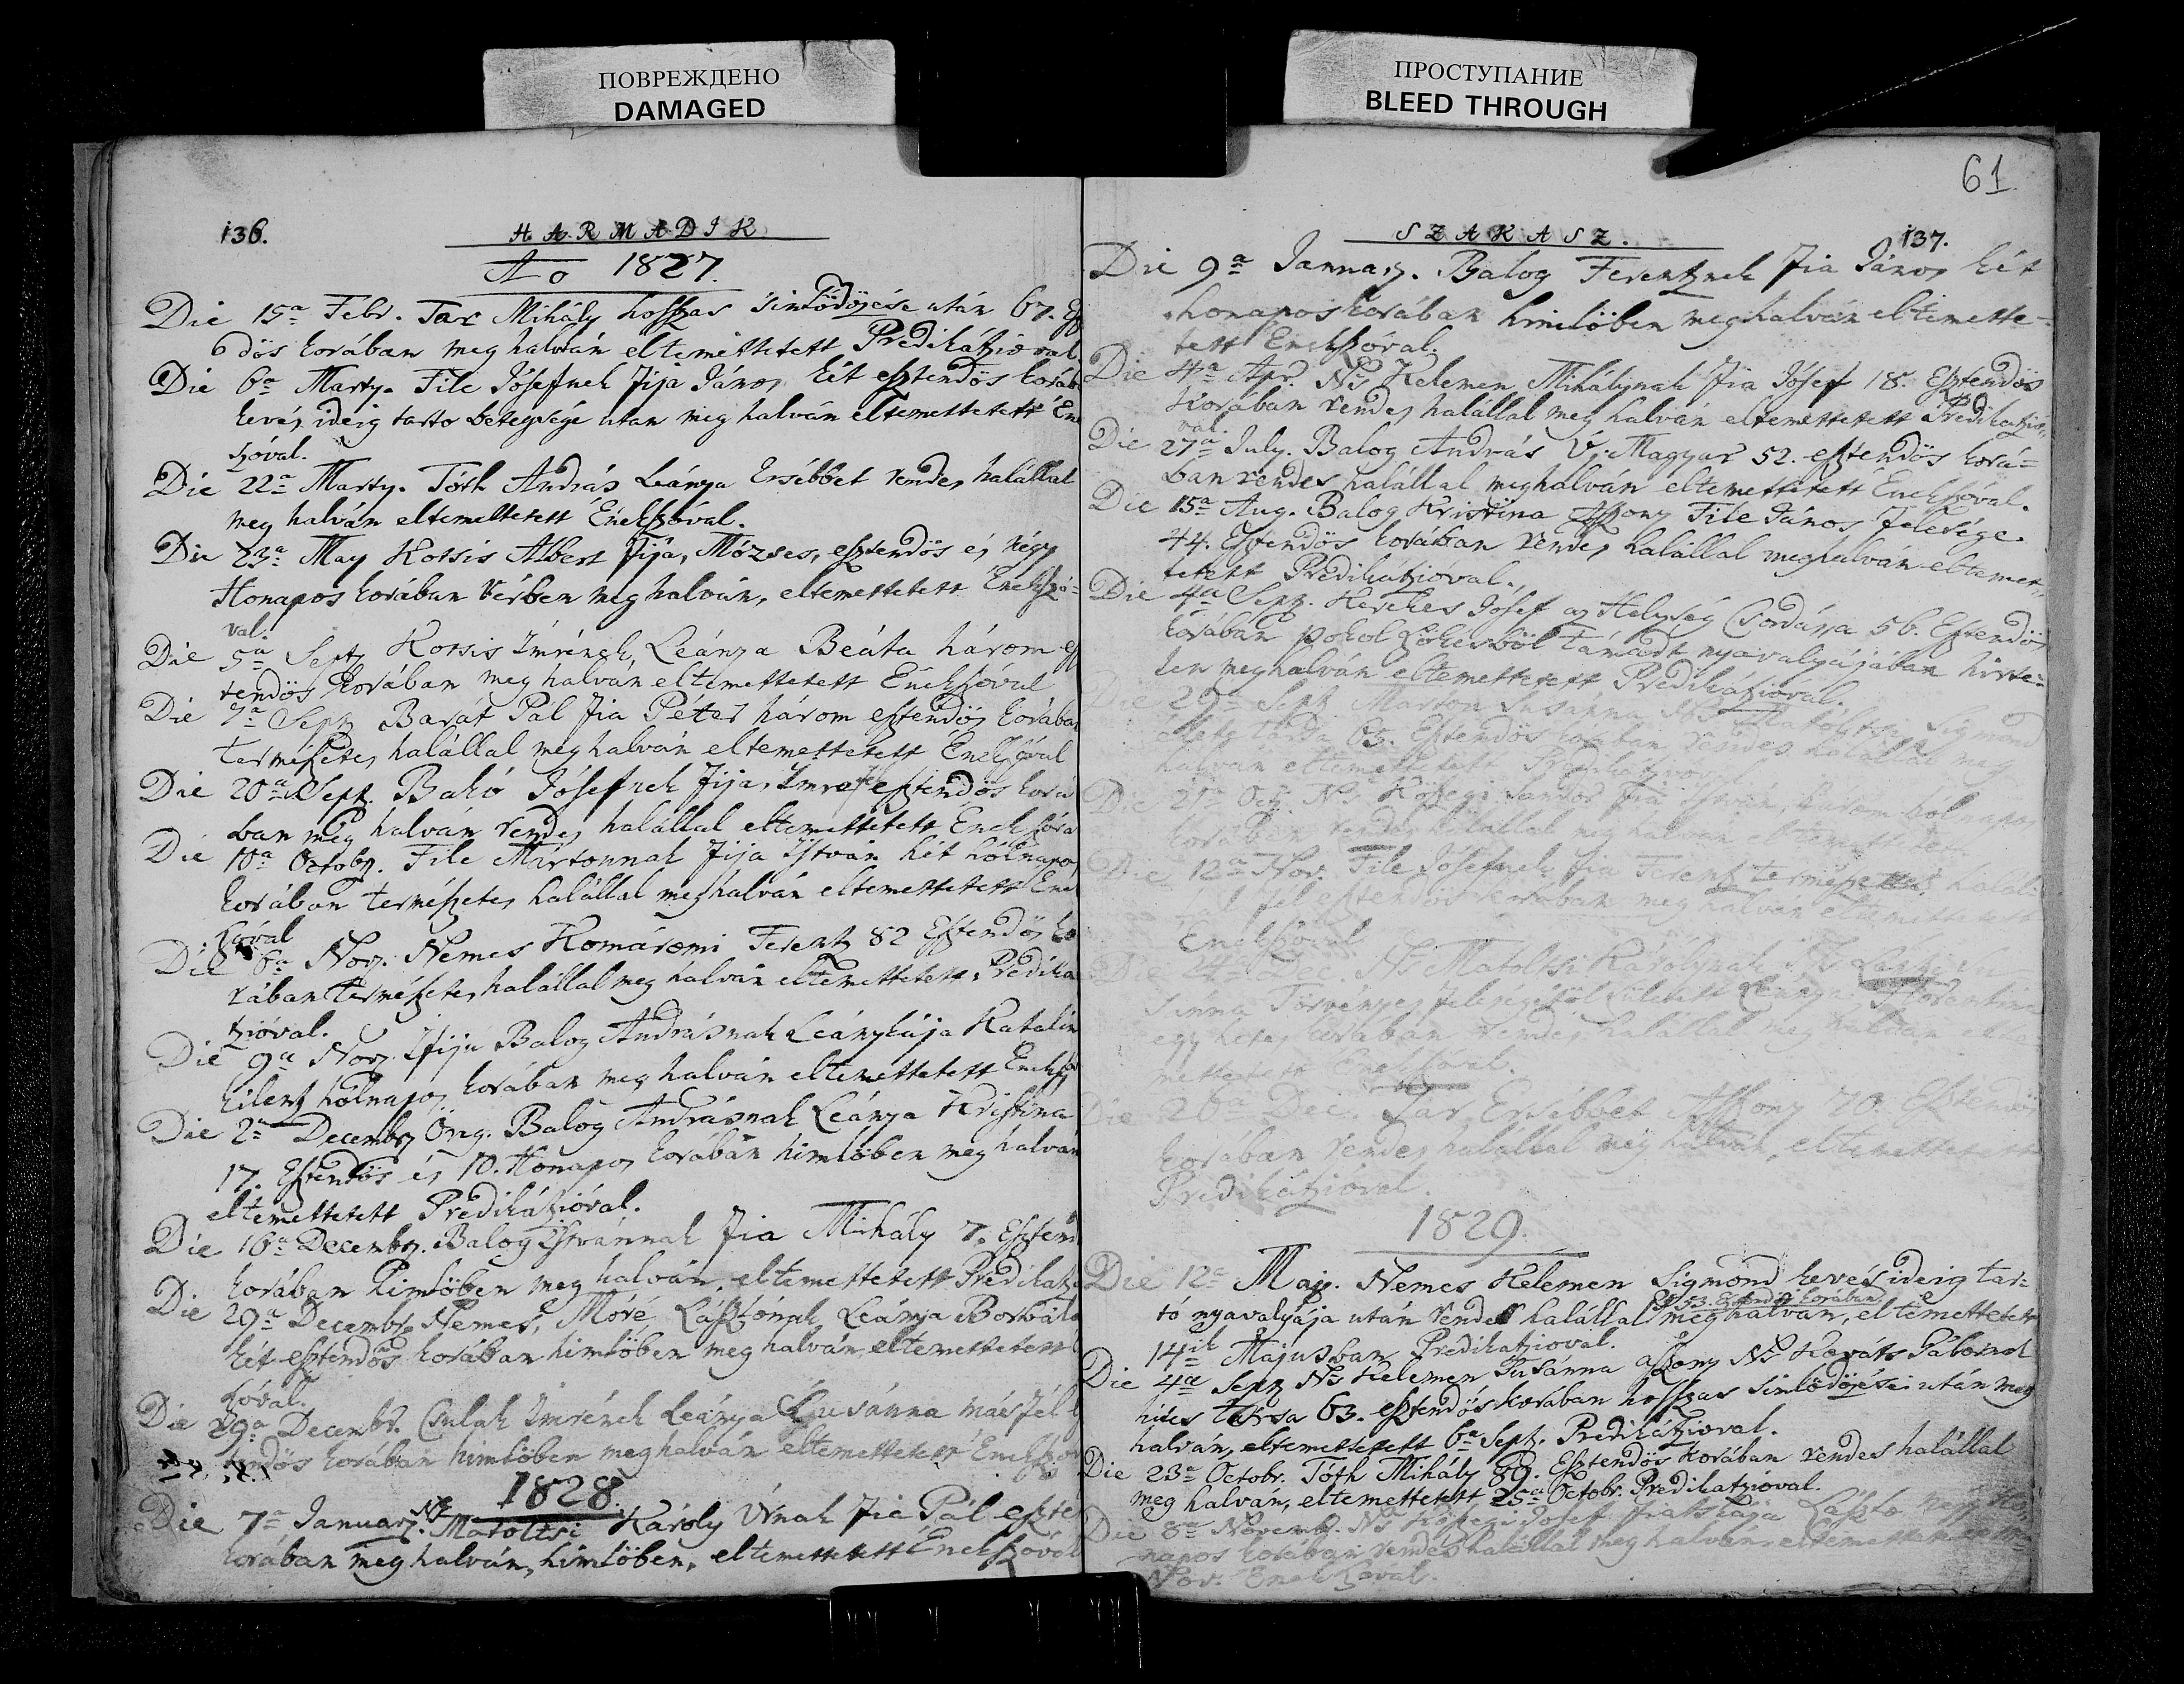 ПОВРЕЖДЕНО
DAMAGED
136.
HARMADIK
Ao 1827.
Die 15a Febr. Tar Mihály hosszas sinlödöjése után 67. Esz
dös korában meg halván eltemettetett Predikátzióval.
Die 6a Marty. File Jósefnek fija János két esztendös korába
kevés ideig tarto betegsége utan meg halván eltemettetett Éne
szóval.
Die 22a Marty. Tóth András Leánya Ersébbet rendes halállal
meg halván eltemettetett Énekszóval.
Die 23a May Kotsis Albert fija, Mózses, esztendös és négy
Honapos korában Vérben meg halván, eltemettetett Énekszó-
val.
Die 5a Septr Kotsis Imrének Leánya Beáta három esz
tendös korában meg halván eltemettetett Énekszóval
Die 7a Sept Barát Pál fia Péter három esztendös korában
természetes halállal meg halván eltemettetett Énekszóval
Die 20a Sept. Bakó Jósefnek fija, Imre esztendös korá
ban meg halván rendes halállal eltemettetett Énekszóva
Die 10a Octobr. File Mártonnak fija István hét hólnapos
korában természetes halállal meghalván eltemettetett Ének
szóval
Die 6a Nov. Nemes Komáromi Ferentz 82 Esztendös ko
rában természetes halállal meg halván eltemettetett Predika
tzióval.
Die 9a Nov. Ifiju Balog Andrásnak Leánykája Katalin
kilentz hólnapos korában meg halván eltemettetett Éneksz
Die 2a Decembr Öreg. Balog Andrásnak Leánya Kristina
17. Esztendös és 10. Honapos korában himlöben meg halván
eltemettetett Predikátzióval.
Die 16a Decembr. Balog Istvánnak fia Mihály 7. Eszten
korában himlöben meg halván, eltemettetett Predikatz
Die 29a Decembr. Nemes, Móré Lászlónak Leánya Borbála
két esztendös korában himlöben meg halván eltemettetett
szóval.
Die 29a Decembr. Csulak Imrének Leánya Susánna másfél
tendös korában himlöben meghalván eltemettetett Énekszóv
1828.
Die 7a Januar. Ns Matoltsi Károly Úrnak fia Pál eszte
korában meg halván, himlöben, eltemettetett Énekszóval
ПРОСТУПАНИЕ
BLEED THROUGH
61
SZAKASZ.
137.
Die 9a Januar. Balog Ferentznek fia János két
honapos korában himlöben meghalván eltemette-
tett Énekszóval.
Die 4a Apr. Ns Kelemen Mihálynak fia Jósef 18. Esztendös
korában rendes halállal meg halván eltemettetett Predikatzió-
val.
Die 27a July. Balog András Új Magyar 52. esztendös korá-
ban rendes halállal meghalván eltemettetett Énekszóval.
Die 15a Aug. Balog Kristina Aszszony File János felesége
44. Esztendös korában rendes halállal meghalván eltemet-
tetett Predikátzióval.
Die 4a Sept. Kerekes Jósef a Helység Csordása 56. Esztendös
korában pokol Kökesböl támadt nyavalyájában hirte-
len meghalván eltemettetett Predikátzióval.
29a Sept. Márton Susánna Ns Matoltsi Sigmond
65. Esztendös korában rendes halállal meg
halván eltemettetett Predikátzióval
Die 21a Oct. Ns Köszegi Sándor fia István, három hólnapos
korában rendes halállal meg halván eltemettetett
Die 12a Nov. File Jósefnek fia Ferentz természetes halál-
lal fél esztendös korában meg halván eltemettetett
Énekszóval
Ns Matoltsi Károlynak
törvényes feleségétöl született Leánya Florentina
egy hetes korában rendes halállal meg halván elte
mettetett Énekszóval.
Die 20a Dec. Tar Ersébbet Aszszony 70 Esztendös
korában rendes halállal meg halván, eltemettetett
Predikátzióval.
1829.
Die 12a Maji. Nemes Kelemen Sigmond kevés ideig tar-
tó nyavalyája után rendes halállal 53. Esztendös korában meg halván, eltemettetett
14ik Májusban Predikatzioval.
Die 4a Sept Ns Kelemen Susánna aszszony Ns Kováts Gábornak
hites társa 63. esztendös korában hosszas sinlödöjései után meg
halván, eltemettetett 6a Sept. Predikátzioval.
Die 23a Octobr. Tóth Mihály 89. Esztendös korában rendes halállal
meg halván, eltemettetett 25a Octobr. Predikatzióval.
Die 8a Novemb. Ns Köszegi Josef fiatskája László négy Ho-
napos korában rendes halállal meg halván eltemettetett
Nov. Énekszóval.